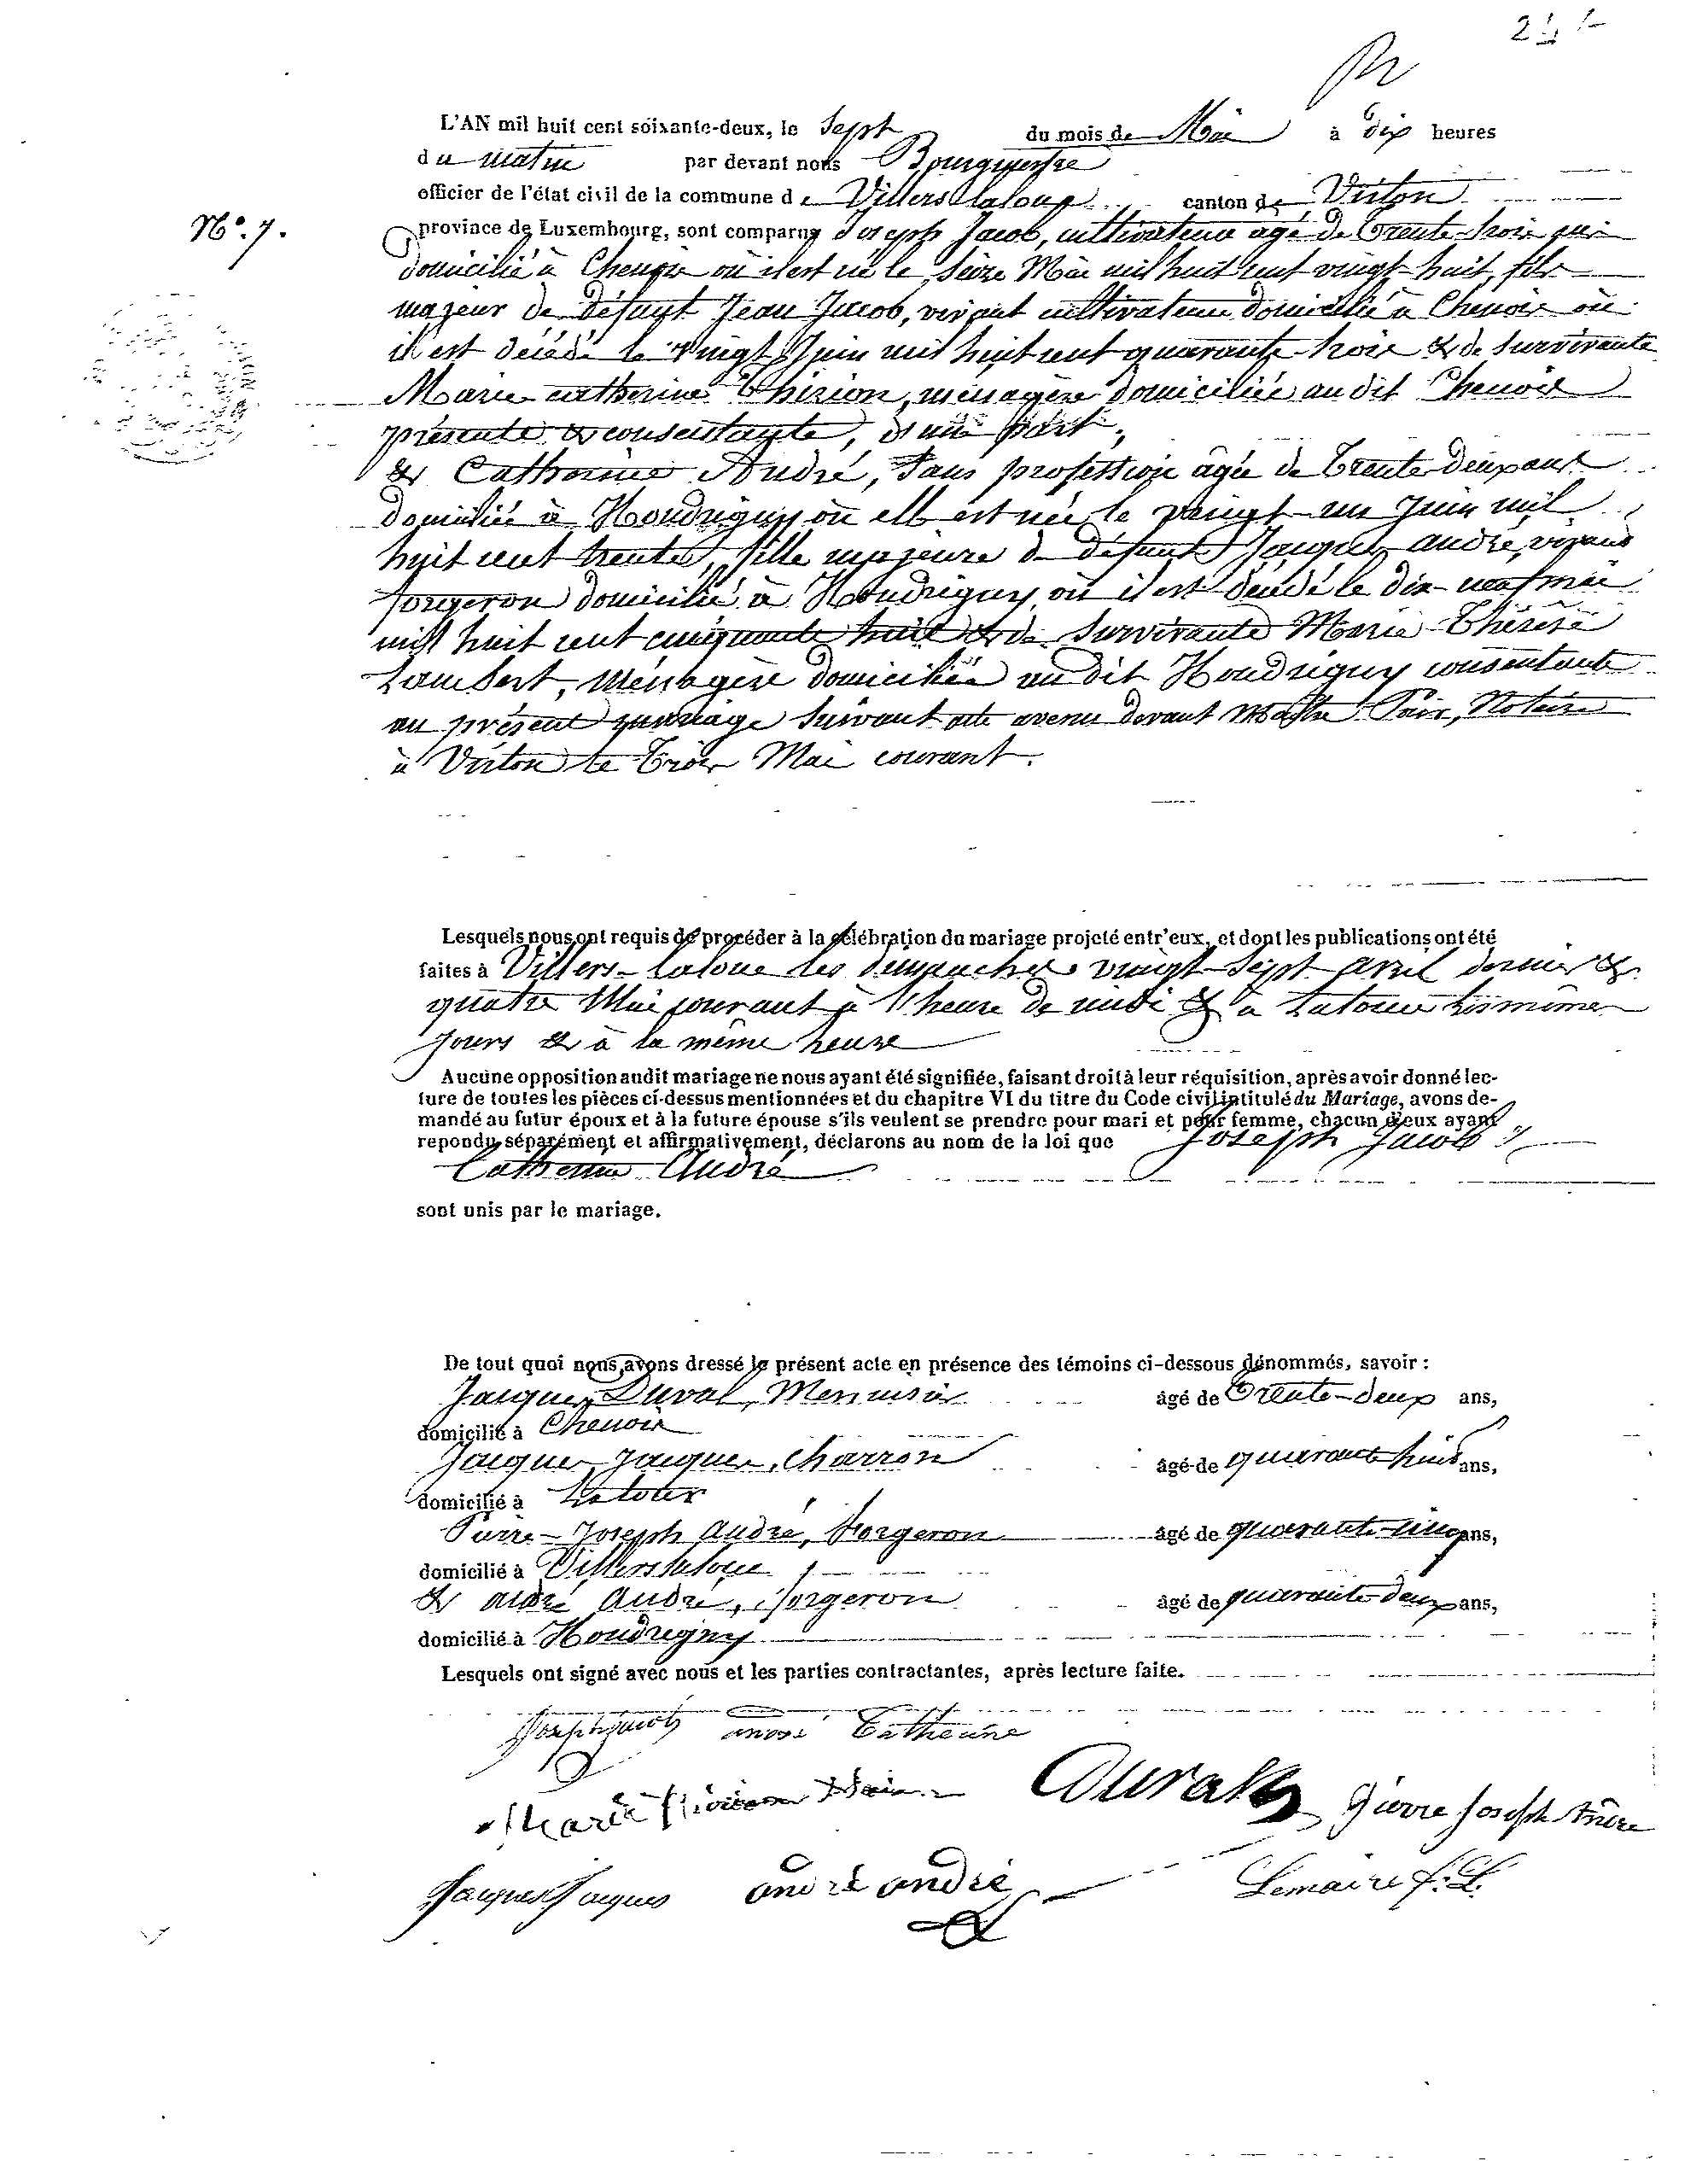 L'AN mil huit cent soixante-deux, le Sept du mois de Mai à dix heures
du matin par devant nous Bourgmestre
officier de l'état civil de la commune de Villers-laloue canton de Virton
N°. 7.
province de Luxembourg, sont comparus Joseph Jacob, cultivateur agé de Trente-trois ans
domicilié à Chenois où il est né le seize Mai mil huit cent vingt-huit, fils
majeur de défunt Jean Jacob, vivant cultivateur domicilié à Chenois où
il est décédé le vingt Juin mil huit cent quarante-trois & de survivante
Marie catherine Thirion, ménagère domiciliée au dit Chenois
présente & consentante, d'une part,
& Catherine André, Sans profession âgée de Trente-deux ans
domiciliée à Houdrigny où elle est née le vingt-un Juin mil
huit cent trente, fille majeure de défunt Jacques andré, vivant
forgeron domicilié à Houdrigny où il est décédé le dix-neuf mai
mil huit cent cinquante huit & de Survivante Marie-Thérèse
Lambert, Ménagère domiciliée au dit Houdrigny consentante
au présent mariage suivant acte avenu devant Maître Notaire
à Virton le Trois Mai courant.
Lesquels nous ont requis de procéder à la célébration du mariage projeté entr'eux, et dont les publications ont été
faites à Villers-laloue les dimanches vingt-sept avril dernier &
quatre Mai courant à l'heure de midi & à Latour les mêmes
jours & à la même heure
Aucune opposition audit mariage ne nous ayant été signifiée, faisant droit à leur réquisition, après avoir donné lec-
ture de toutes les pièces ci-dessus mentionnées et du chapitre VI du titre du Code civil intitulé du Mariage, avons de-
mandé au futur époux et à la future épouse s'ils veulent se prendre pour mari et pour femme, chacun d'eux ayant
repondu séparément et affirmativement, déclarons au nom de la loi que Joseph Jacob &
Catherine André
sont unis par le mariage.
De tout quoi nous avons dressé le présent acte en présence des témoins ci-dessous dénommés, savoir :
Jacques Duval, Menuisier âgé de Trente-deux ans,
domicilié à Chenois
Jacques Jacques, Charron âgé de quarante huit ans,
domicilié à Latour
Pierre-Joseph André, forgeron âgé de quarante-cinq ans,
domicilié à Villers laloue
& andré André, forgeron âgé de quarante-deux ans,
domicilié à Houdrigny
Lesquels ont signé avec nous et les parties contractantes, après lecture faite.
Joseph jacob andré Catherine
Marie Duval Pierre joseph andre
Jacques Jacques andré andré Lemaire